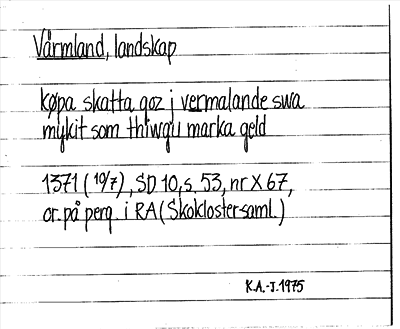 Värmland, landskap
køpa skatta goz j vermalande swa
mykit som thiwgu marka geld
1371 (10/7), SD 10, s. 53, nr X 67,
or. på perg. i RA (Skoklostersaml.)
K.A.-J. 1975